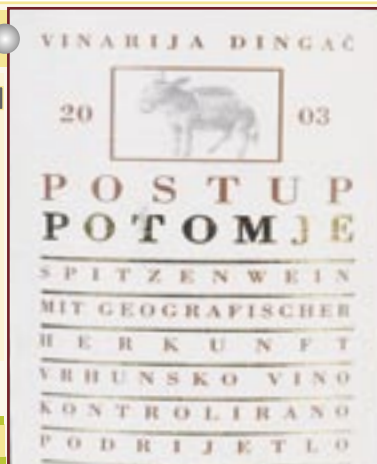 VINARIJA DINGAČ
20 03
POSTUP
POTOMJE
SPITZENWEIN
MIT GEOGRAFISCHER
HERKUNFT
VRHUNSKO VINO
KONTROLIRANO
PODRIJETLO